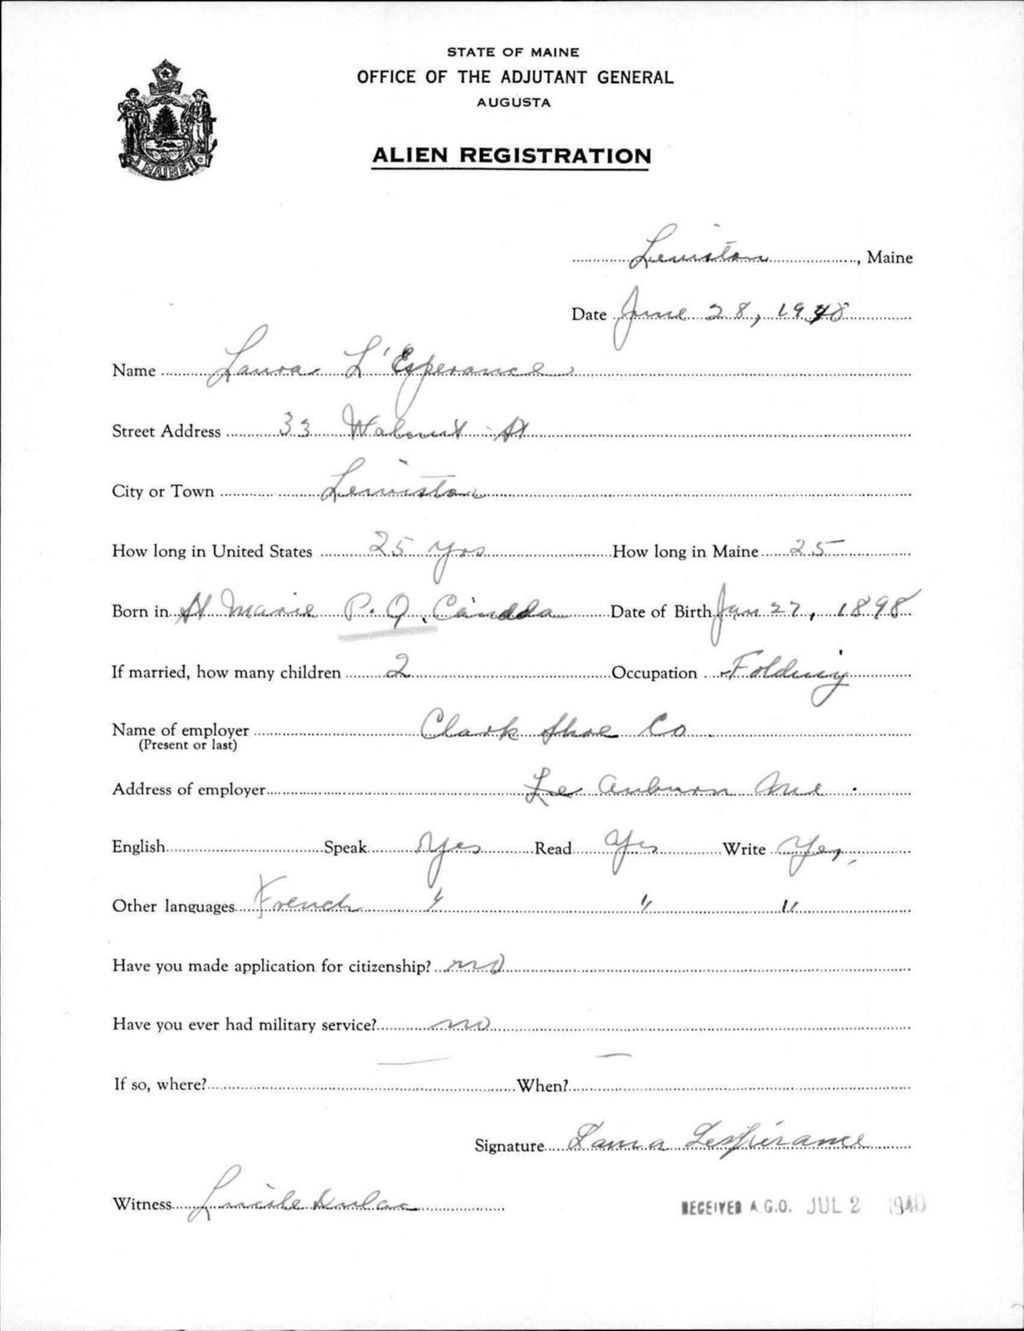 STATE OF MAINE
OFFICE OF THE ADJUTANT GENERAL
AUGUSTA
ALIEN REGISTRATION
MAINE
Lewiston, Maine
Date June 28, 1940
Name Laura L'Esperance
Street Address 33 Walnut St
City or Town Lewiston
How long in United States 25 yrs How long in Maine 25
Born in St Marie P.Q. Canada Date of Birth Jan 27, 1898
If married, how many children 2 Occupation Folding
Name of employer Clark Shoe Co
(Present or last)
Address of employer Auburn Me.
English Speak Yes Read Yes Write Yes,
Other languages French " " "
Have you made application for citizenship? no
Have you ever had military service? no
If so, where? — When? —
Signature Laura Lesperance
Witness Lucile Dulac
RECEIVED A.G.O. JUL 2 1940